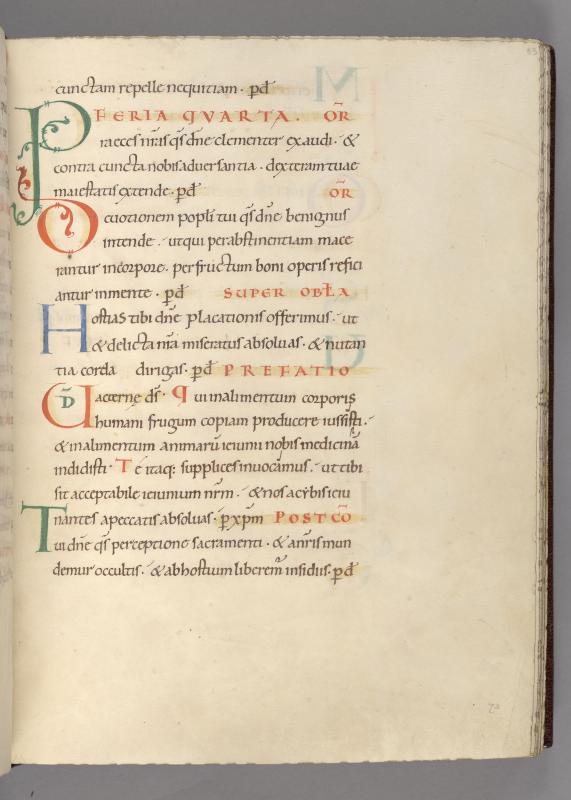 cunctam repelle nequitiam · p̄d
FERIA QVARTA · OR̄
Praeces nr̄as qs̄ dn̄e clementer exaudi · &
contra cuncta nobis aduersantia · dexteram tuae
maiestatis extende · p̄d OR̄
Deuotionem popli tui qs̄ dn̄e benignus
intende · ut qui per abstinentiam mace
rantur in corpore · per fructum boni operis refici
antur in mente · p̄d SUPER OBLA
Hostias tibi dn̄e placationis offerimus · ut
& delicta nr̄a miseratus absoluas · & nutan
tia corda dirigas · p̄d PREFATIO
UD aeterne ds̄ · Qui in alimentum corporis
humani frugum copiam producere iussisti ·
& in alimentum animarū ieiunii nobis medicinā
indidisti · Te itaq: supplices inuocamus · ut tibi
sit acceptabile ieiunium nr̄m · & nos a cybis ieiu
nantes a peccatis absoluas · p̄ xp̄m POST CŌ
Tui dn̄e qs̄ perceptione sacramenti · & a nr̄is mun
demur occultis · & ab hostium liberemur insidiis · p̄d